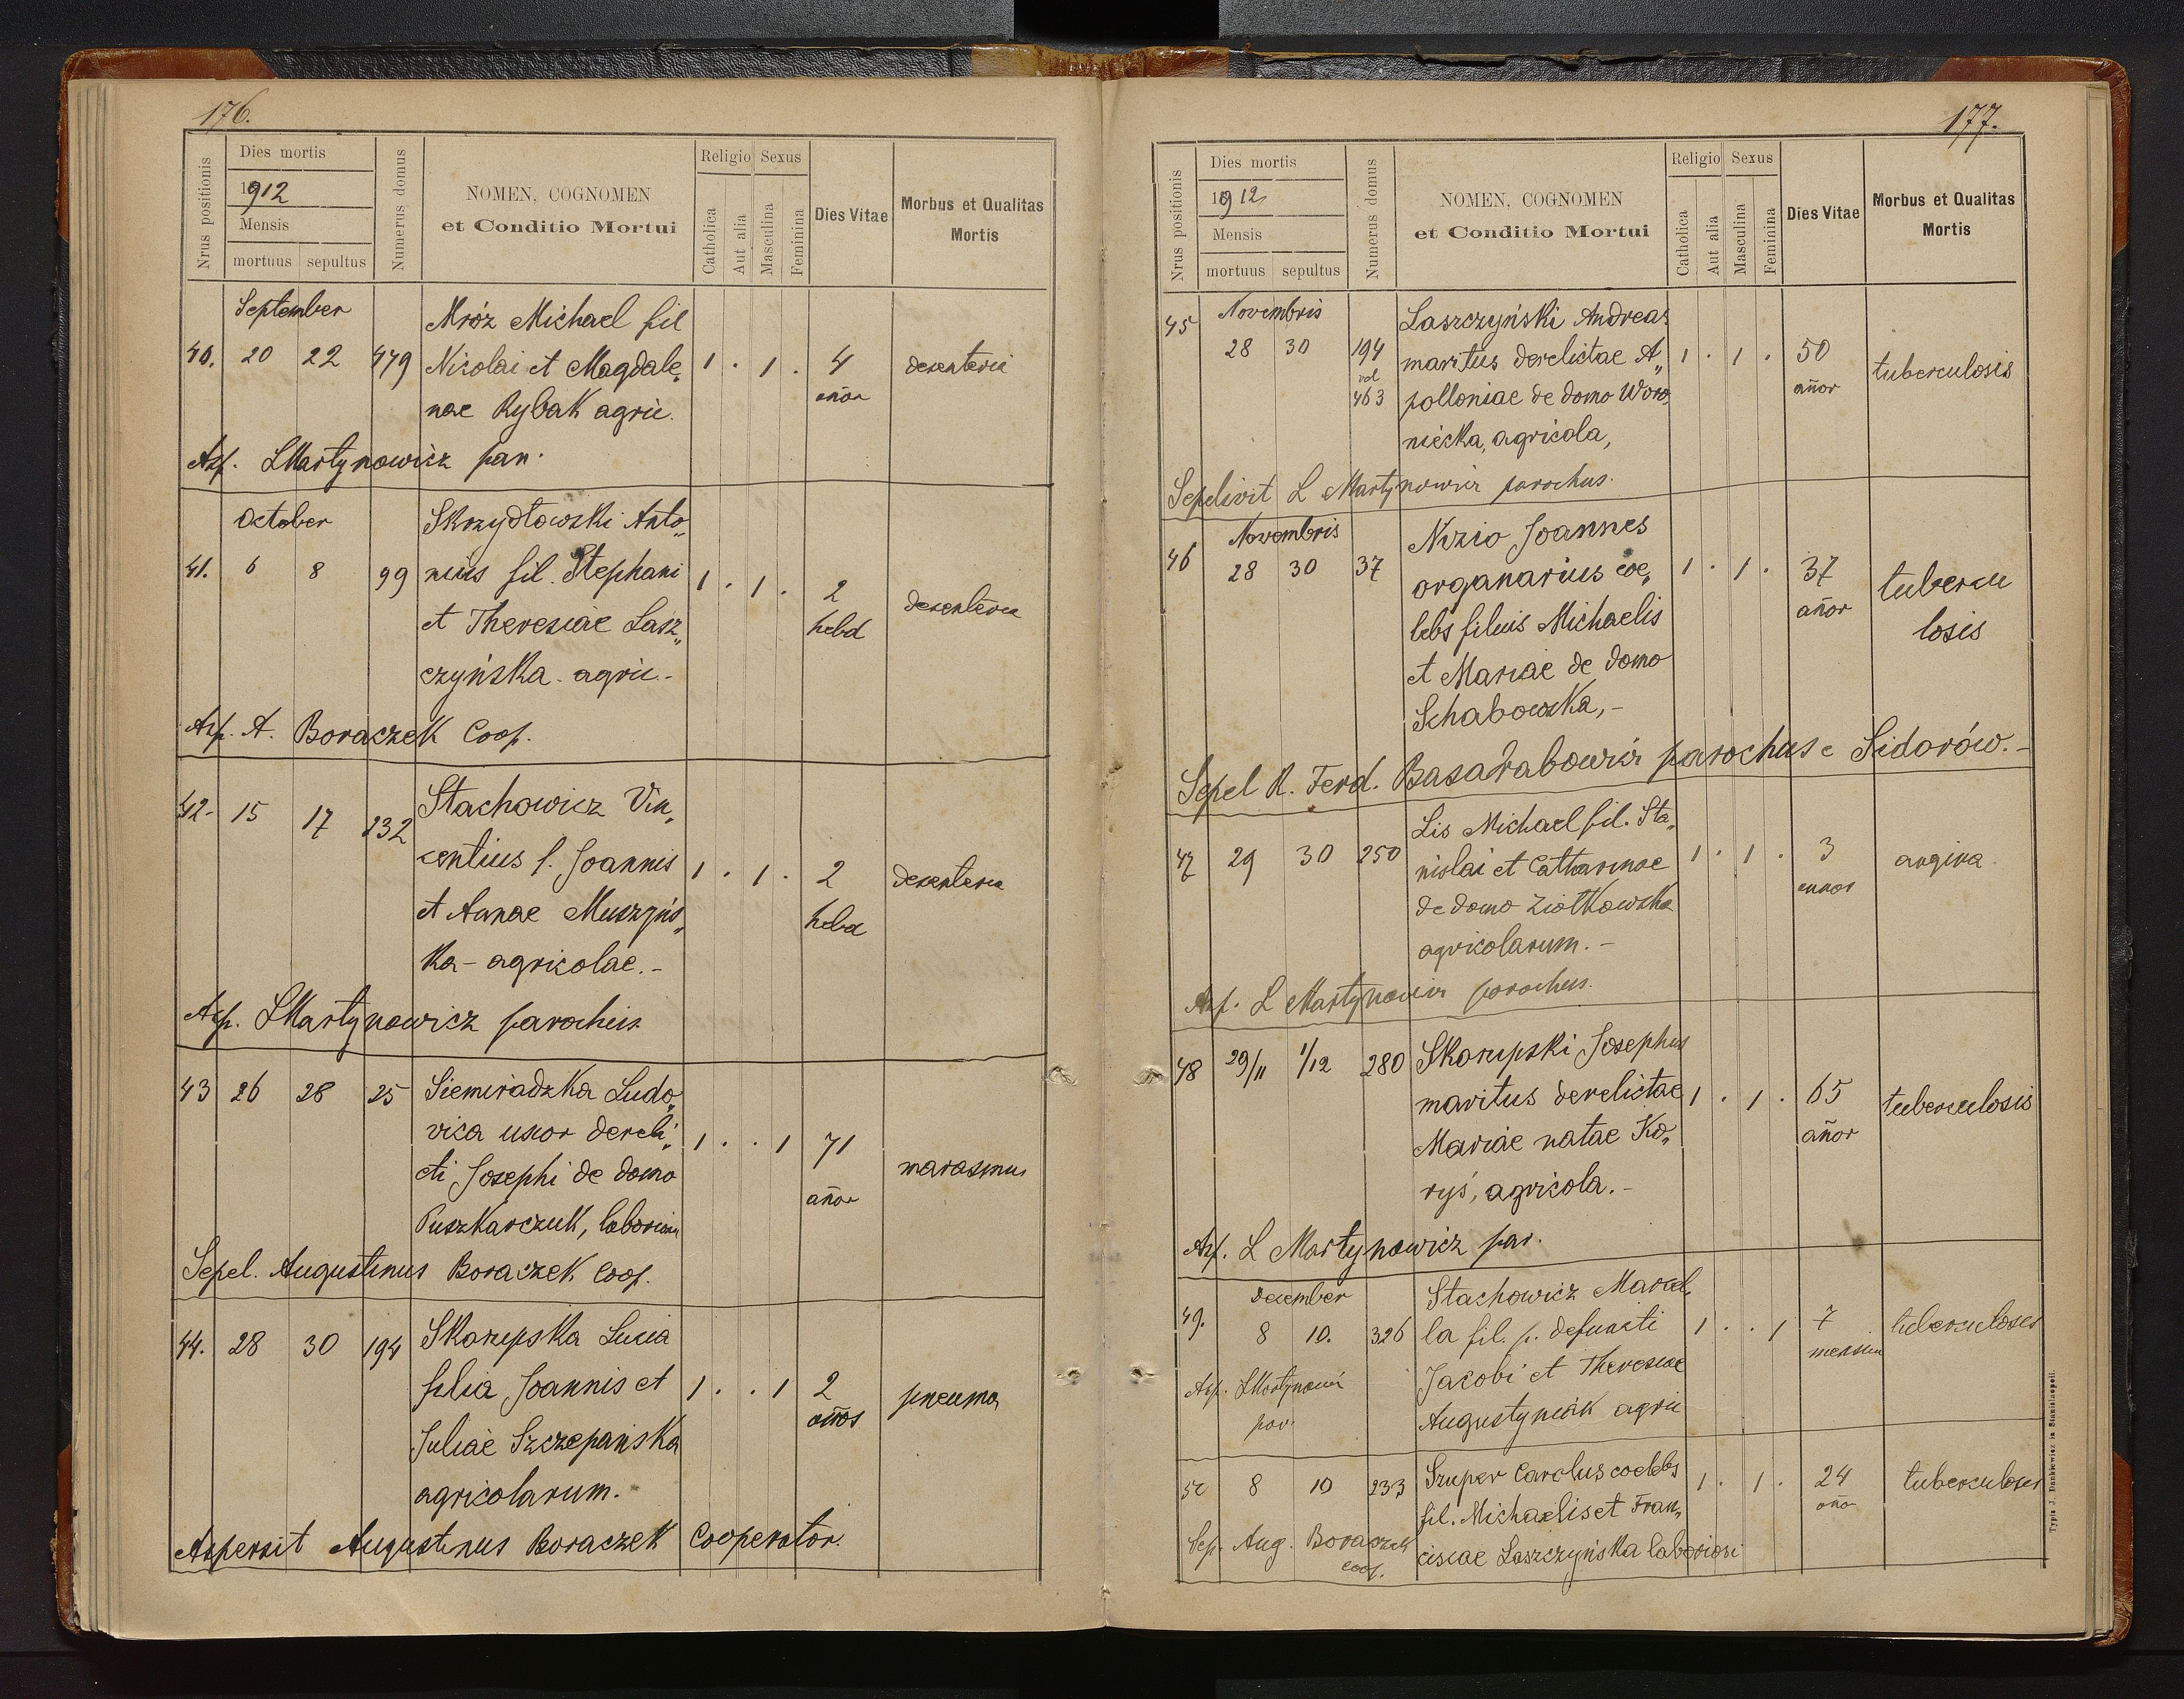 176.
Nrus positionis
Dies mortis
1912
Mensis
mortuus sepultus
Numerus domus
NOMEN, COGNOMEN
et Conditio Mortui
Religio Sexus
Catholica
Aut alia
Masculina
Feminina
Dies Vitae
Morbus et Qualitas
Mortis
September Mróz Michael fil
40. 20 22 479 Nicolai et Magdale„ 1 . 1 . 4 desenteria
nae Rybak agric. añor
Asp. LMartynowicz par.
October Skrzydłowski Anto„
41. 6 8 99 nius fil. Stephani 1 . 1 . 2 desenteria
et Theresiae Lasz„ hebd
czyńska - agric.-
Asp. A. Boraczek Coop.
42- 15 17 232 Stachowicz Vin„
centius f. Joannis 1 . 1 . 2 desenteria
et Annae Muszyńs„ hebd
ka - agricolae.-
Asp. LMartynowicz parochus
43 26 28 25 Siemiradzka Ludo„
vica uxor dereli„ 1 . . 1 71 marasmus
cti Josephi de domo añor
Puszkarczuk,
Sepel. Augustinus Boraczek Coop.
44. 28 30 194 Skarupska Lucia
filia Joannis et 1 . . 1 2 pneumo
Juliae Szczepańska años
agricolarum.
Aspersit Augustinus Boraczek Cooperator.
177.
Nrus positionis
Dies mortis
1912
Mensis
mortuus sepultus
Numerus domus
NOMEN, COGNOMEN
et Conditio Mortui
Religio Sexus
Catholica
Aut alia
Masculina
Feminina
Dies Vitae
Morbus et Qualitas
Mortis
45 Novembris Laszczyński Andreas
28 30 194 maritus derelictae A„ 1 . 1 . 50 tuberculosis
vel
463 polloniae de domo Woro„ añor
niecka, agricola,
Sepelivit L Martynowicz parochus.
Novembris Nizio Joannes
46 28 30 37 organarius coe„ 1 . 1 . 37 tubercu
lebs filius Michaelis añor losis
et Mariae de domo
Schabowska,-
Sepel R. Ferd. Basarabowicz parochus e Sidorów.-
Lis Michael fil. Sta„
47 29 30 250 nislai et Catharinae 1 . 1 . 3 angina
de domo Ziółkowska annor
agricolarum.-
Asp. L Martynowicz parochus.
48 29/11 1/12 280 Skarupski Josephus
maritus derelictae 1 . 1 . 65 tuberculosis
Mariae natae Ko„ añor
ryś, agricola.-
Asp. L Martynowicz par.
December Stachowicz Marcel„
49. 8 10. 326 la fil. p. defuncti 1 . . 1 7 tuberculoses
Asp. LMartynowicz Jacobi et Theresiae mensiu
par. Augustyniak agric
50 8 10 233 Szuper Carolus coelebs 1 . 1 . 24 tuberculoses
fil. Michaelis et Fran„ año
Sep. Aug. Boraczek ciscae Laszczyńska laboriosi
coop.
Typis J. Dankiewicz in Stanislaopoli.